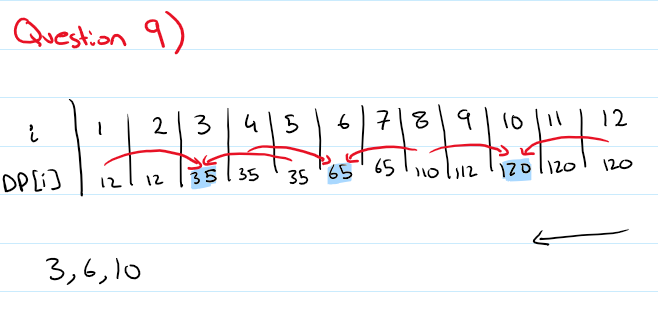 Question 9)
i | 1 | 2 | 3 | 4 | 5 | 6 | 7 | 8 | 9 | 10 | 11 | 12
DP[i] 12 | 12 | 35 | 35 | 35 | 65 | 65 | 110 | 112 | 120 | 120 | 120
3, 6, 10